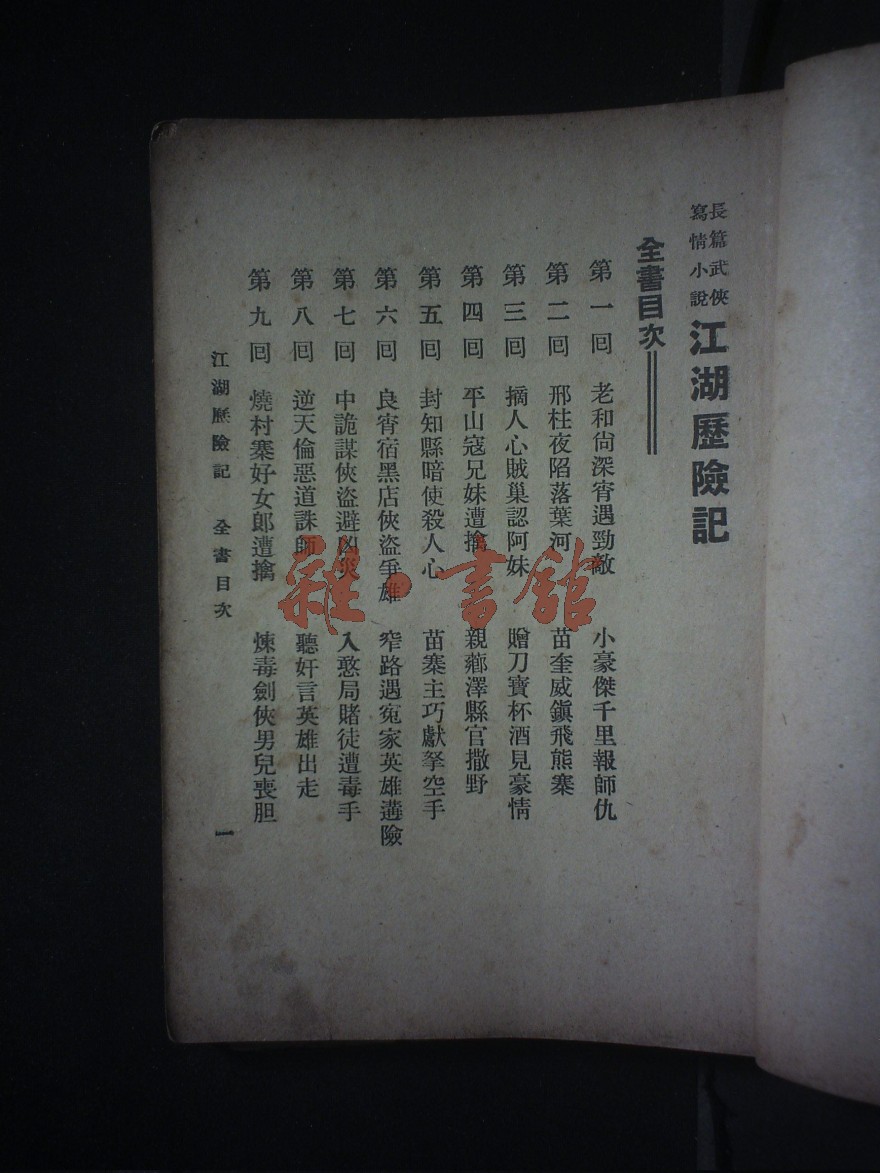 長篇武俠
寫情小說
江湖歷險記
全書目次
第一回 老和尙深宵遇勁敵 小豪傑千里報師仇
第二回 邢柱夜陷落葉河 苗奎威鎭飛熊寨
第三回 摘人心賊巢認阿妹 贈刀寶杯酒見豪情
第四回 平山寇兄妹遭擒 親薌澤縣官撒野
第五回 封知縣暗使殺人心 苗寨主巧獻拏空手
第六回 良宵宿黑店俠盜爭雄 窄路遇寃家英雄遘險
第七回 中詭謀俠盜避凶災 入憨局賭徒遭毒手
第八回 逆天倫惡道誅師 聽奸言英雄出走
第九回 燒村寨好女郞遭擒 煉毒劍俠男兒喪胆
江湖歷險記 全書目次 一
雜·書館